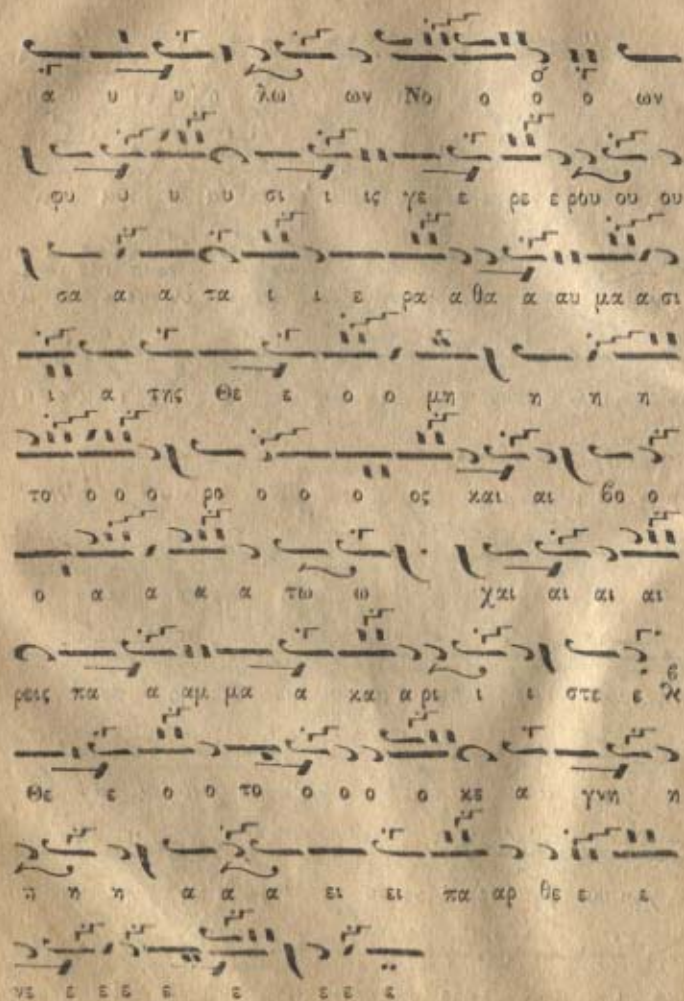 α υ υ λω ων Νο ο ο ο ων
φυ υ υ υ σι ι ις γε ε ρε ε ρου ου ου
σα α α τα ι ι ε ρα α θα α αυ μα α σι
ι α της Θε ε ο ο μη η η η
το ο ο ο ρο ο ο ο ος και αι βο ο
ο α α α α τω ω χαι αι αι αι
ρεις πα α αμ μα α κα α ρι ι ι στε ε
Θε ε ο ο το ο ο ο ο κε α γνη η
η η η α α α ει ει πα αρ θε ε ε
νε ε ε ε ε ε ε ε ε